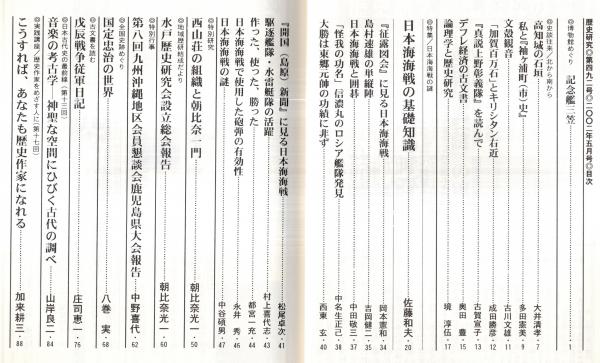 歴史研究◎第四九二号◎二〇〇二年五月号◎目次
◎博物館めぐり 記念艦三笠 ・1
◎史談往来/北から南から
高知城の石垣 大井清孝・7
私と『袖ヶ浦町(市)史』 多田憲美・9
文殻観音 古川文雄・11
「加賀百万石」とキリシタン右近 成田勝彦・12
『真説上野彰義隊』を読んで 古賀宣子・13
デフレ経済の古文書 奥田豊・15
論理学と歴史研究 境淳伍・17
◎特集/日本海海戦の謎
日本海海戦の基礎知識 佐藤和夫・20
『征露図会』に見る日本海海戦 岡本憲和・34
島村速雄の単縦陣 吉岡健二・35
日本海海戦と囲碁 中田敬三・37
「怪我の功名」信濃丸のロシア艦隊発見 中名生正己・38
大勝は東郷元帥の功績に非ず 西東玄・40
『開国(島原)新聞』に見る日本海海戦 松尾卓次・41
駆逐艦隊・水雷艇隊の活躍 村上喜代志・43
作った、使った、勝った 都宮一充・44
日本海海戦で使用した砲弾の有効性 永井秀・46
日本海海戦の謎 中谷碩男・47
◎特別研究
西山荘の組織と朝比奈一門 朝比奈光一・50
◎地域歴研結成だより
水戸歴史研究会設立総会報告 朝比奈光一・60
◎特別行事
第八回九州沖縄地区会員懇談会鹿児島県大会報告 中野喜代・62
◎全国史跡めぐり
国定忠治の世界 八巻実・68
◎古文書を読む
戊辰戦争従軍日記 庄司恵一・76
◎日本古代史の最前線(第十三回)
音楽の考古学―神聖な空間にひびく古代の調べ 山岸良二・84
◎実践講座/歴史作家をめざす人に(第十七回)
こうすれば、あなたも歴史作家になれる 加来耕三・88